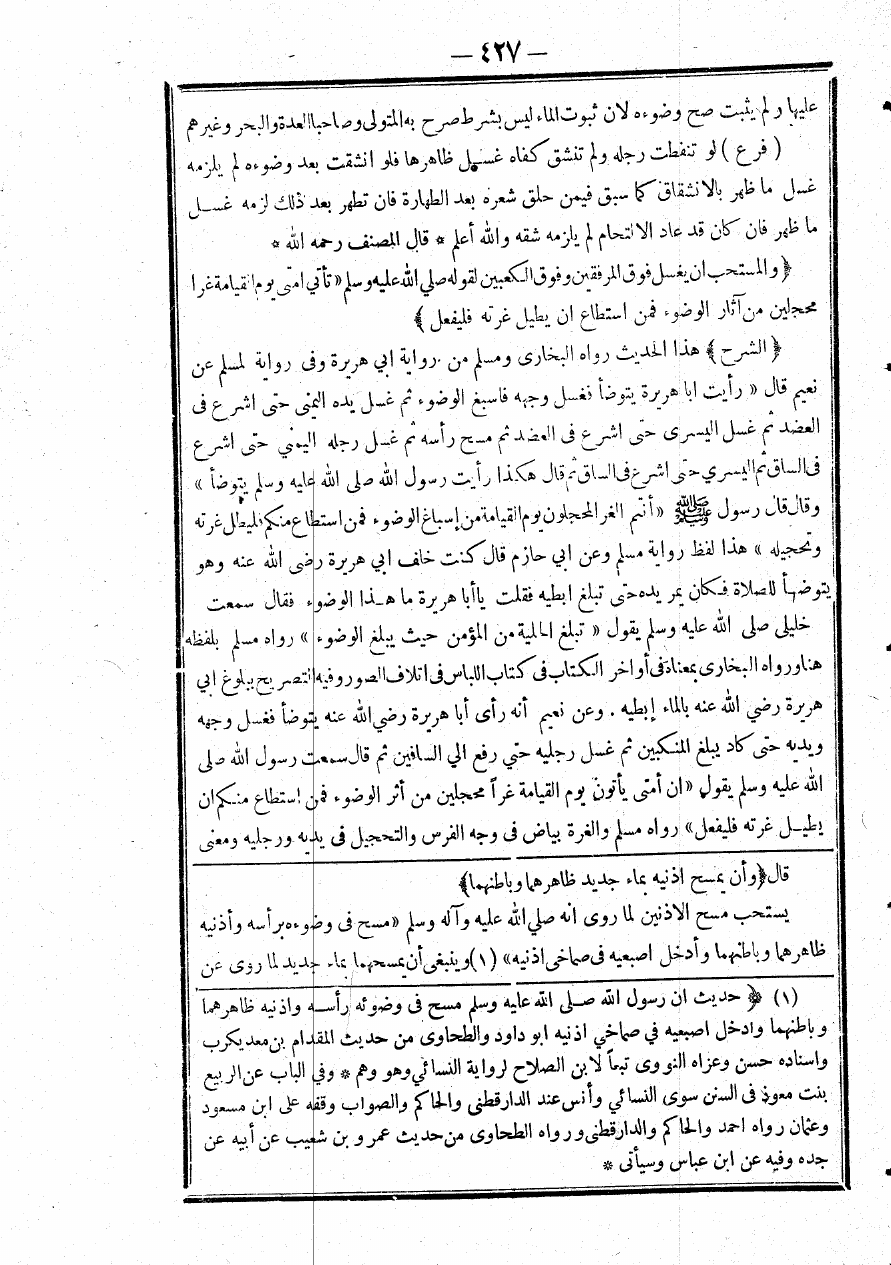 — ٤٢٧ —
عليها ولم يثبت صح وضوءه لان ثبوت الماء ليس بشرط صرح به المتولى وصاحبا العدة والبحر وغيرهم
( فرع ) لو تنفطت رجله ولم تنشق كفاه غسل ظاهرها فلو انشقت بعد وضوءه لم يلزمه
غسل ما ظهر بالانشقاق كما سبق فيمن حلق شعره بعد الطهارة فان تطهر بعد ذلك لزمه غسل
ما ظهر فان كان قد عاد الالتحام لم يلزمه شقه والله أعلم * قال المصنف رحمه الله *
﴿ والمستحب ان يغسل فوق المرفقين وفوق الكعبين لقوله صلي الله عليه وسلم « تأتي امتى يوم القيامة غرا
محجلين من آثار الوضوء فمن استطاع ان يطيل غرته فليفعل ﴾
﴿ الشرح ﴾ هذا الحديث رواه البخارى ومسلم من رواية ابي هريرة وفى رواية لمسلم عن
نعيم قال « رأيت ابا هريرة يتوضأ فغسل وجهه فاسبغ الوضوء ثم غسل يده اليمنى حتى اشرع فى
العضد ثم غسل اليسرى حتى اشرع فى العضد ثم مسح رأسه ثم غسل رجله اليمني حتى اشرع
فى الساق ثم اليسري حتى اشرع فى الساق ثم قال هكذا رأيت رسول الله صلى الله عليه وسلم يتوضأ »
وقال قال رسول ﷺ « أنتم الغر المحجلون يوم القيامة من إسباغ الوضوء فمن استطاع منكم فليطل غرته
وتحجيله » هذا لفظ رواية مسلم وعن ابي حازم قال كنت خلف ابي هريرة رضى الله عنه وهو
يتوضأ للصلاة فكان يمر يده حتى تبلغ ابطيه فقلت ياأبا هريرة ما هذا الوضوء فقال سمعت
خليلى صلى الله عليه وسلم يقول « تبلغ الحلية من المؤمن حيث يبلغ الوضوء » رواه مسلم بلفظه
هنا ورواه البخارى بمعناه فى أواخر الكتاب فى كتاب اللباس فى اتلاف الصور وفيه التصريح ببلوغ ابي
هريرة رضي الله عنه بالماء إبطيه . وعن نعيم أنه رأى أبا هريرة رضي الله عنه يتوضأ فغسل وجهه
ويديه حتى كاد يبلغ المنكبين ثم غسل رجليه حتي رفع الي الساقين ثم قال سمعت رسول الله صلى
الله عليه وسلم يقول « ان أمتى يأتون يوم القيامة غراً محجلين من أثر الوضوء فمن استطاع منكم ان
يطيل غرته فليفعل » رواه مسلم والغرة بياض فى وجه الفرس والتحجيل فى يديه ورجليه ومعنى
قال ﴿ وأن يمسح اذنيه بماء جديد ظاهرهما وباطنهما ﴾
يستحب مسح الاذنين لما روى انه صلي الله عليه وآله وسلم « مسح فى وضوءه برأسه وأذنيه
ظاهرهما وباطنهما وأدخل اصبعيه فى صماخى اذنيه » (١) وينبغى أن يمسحهما بماء جديد لما روى عن
(١) ﴿ حديث ان رسول الله صلى الله عليه وسلم مسح فى وضوئه رأسه واذنيه ظاهرهما
وباطنهما وادخل اصبعيه في صماخي اذنيه ابو داود والطحاوى من حديث المقدام بن معديكرب
واسناده حسن وعزاه النووى تبعاً لابن الصلاح لرواية النسائي وهو وهم * وفي الباب عن الربيع
بنت معوذ فى السنن سوى النسائي وأنس عند الدارقطنى والحاكم والصواب وقفه على ابن مسعود
وعثمان رواه احمد والحاكم والدارقطنى ورواه الطحاوى من حديث عمرو بن شعيب عن أبيه عن
جده وفيه عن ابن عباس وسيأتى *